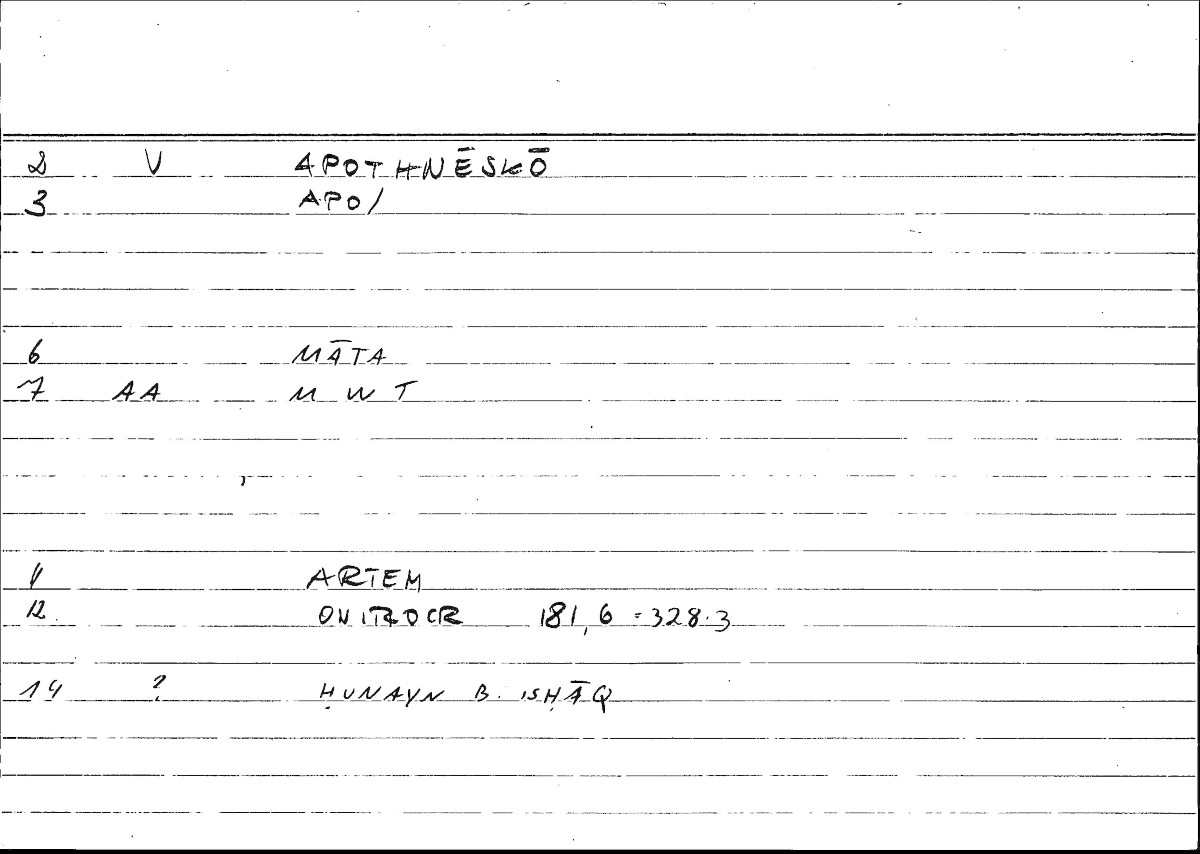 2 V APOTHNĒSKŌ
3 APO/
6 MĀTA
7 AA M W T
11 ARTEM
12 ONIROCR 181,6 = 328.3
14 ? ḤUNAYN B. ISḤĀQ